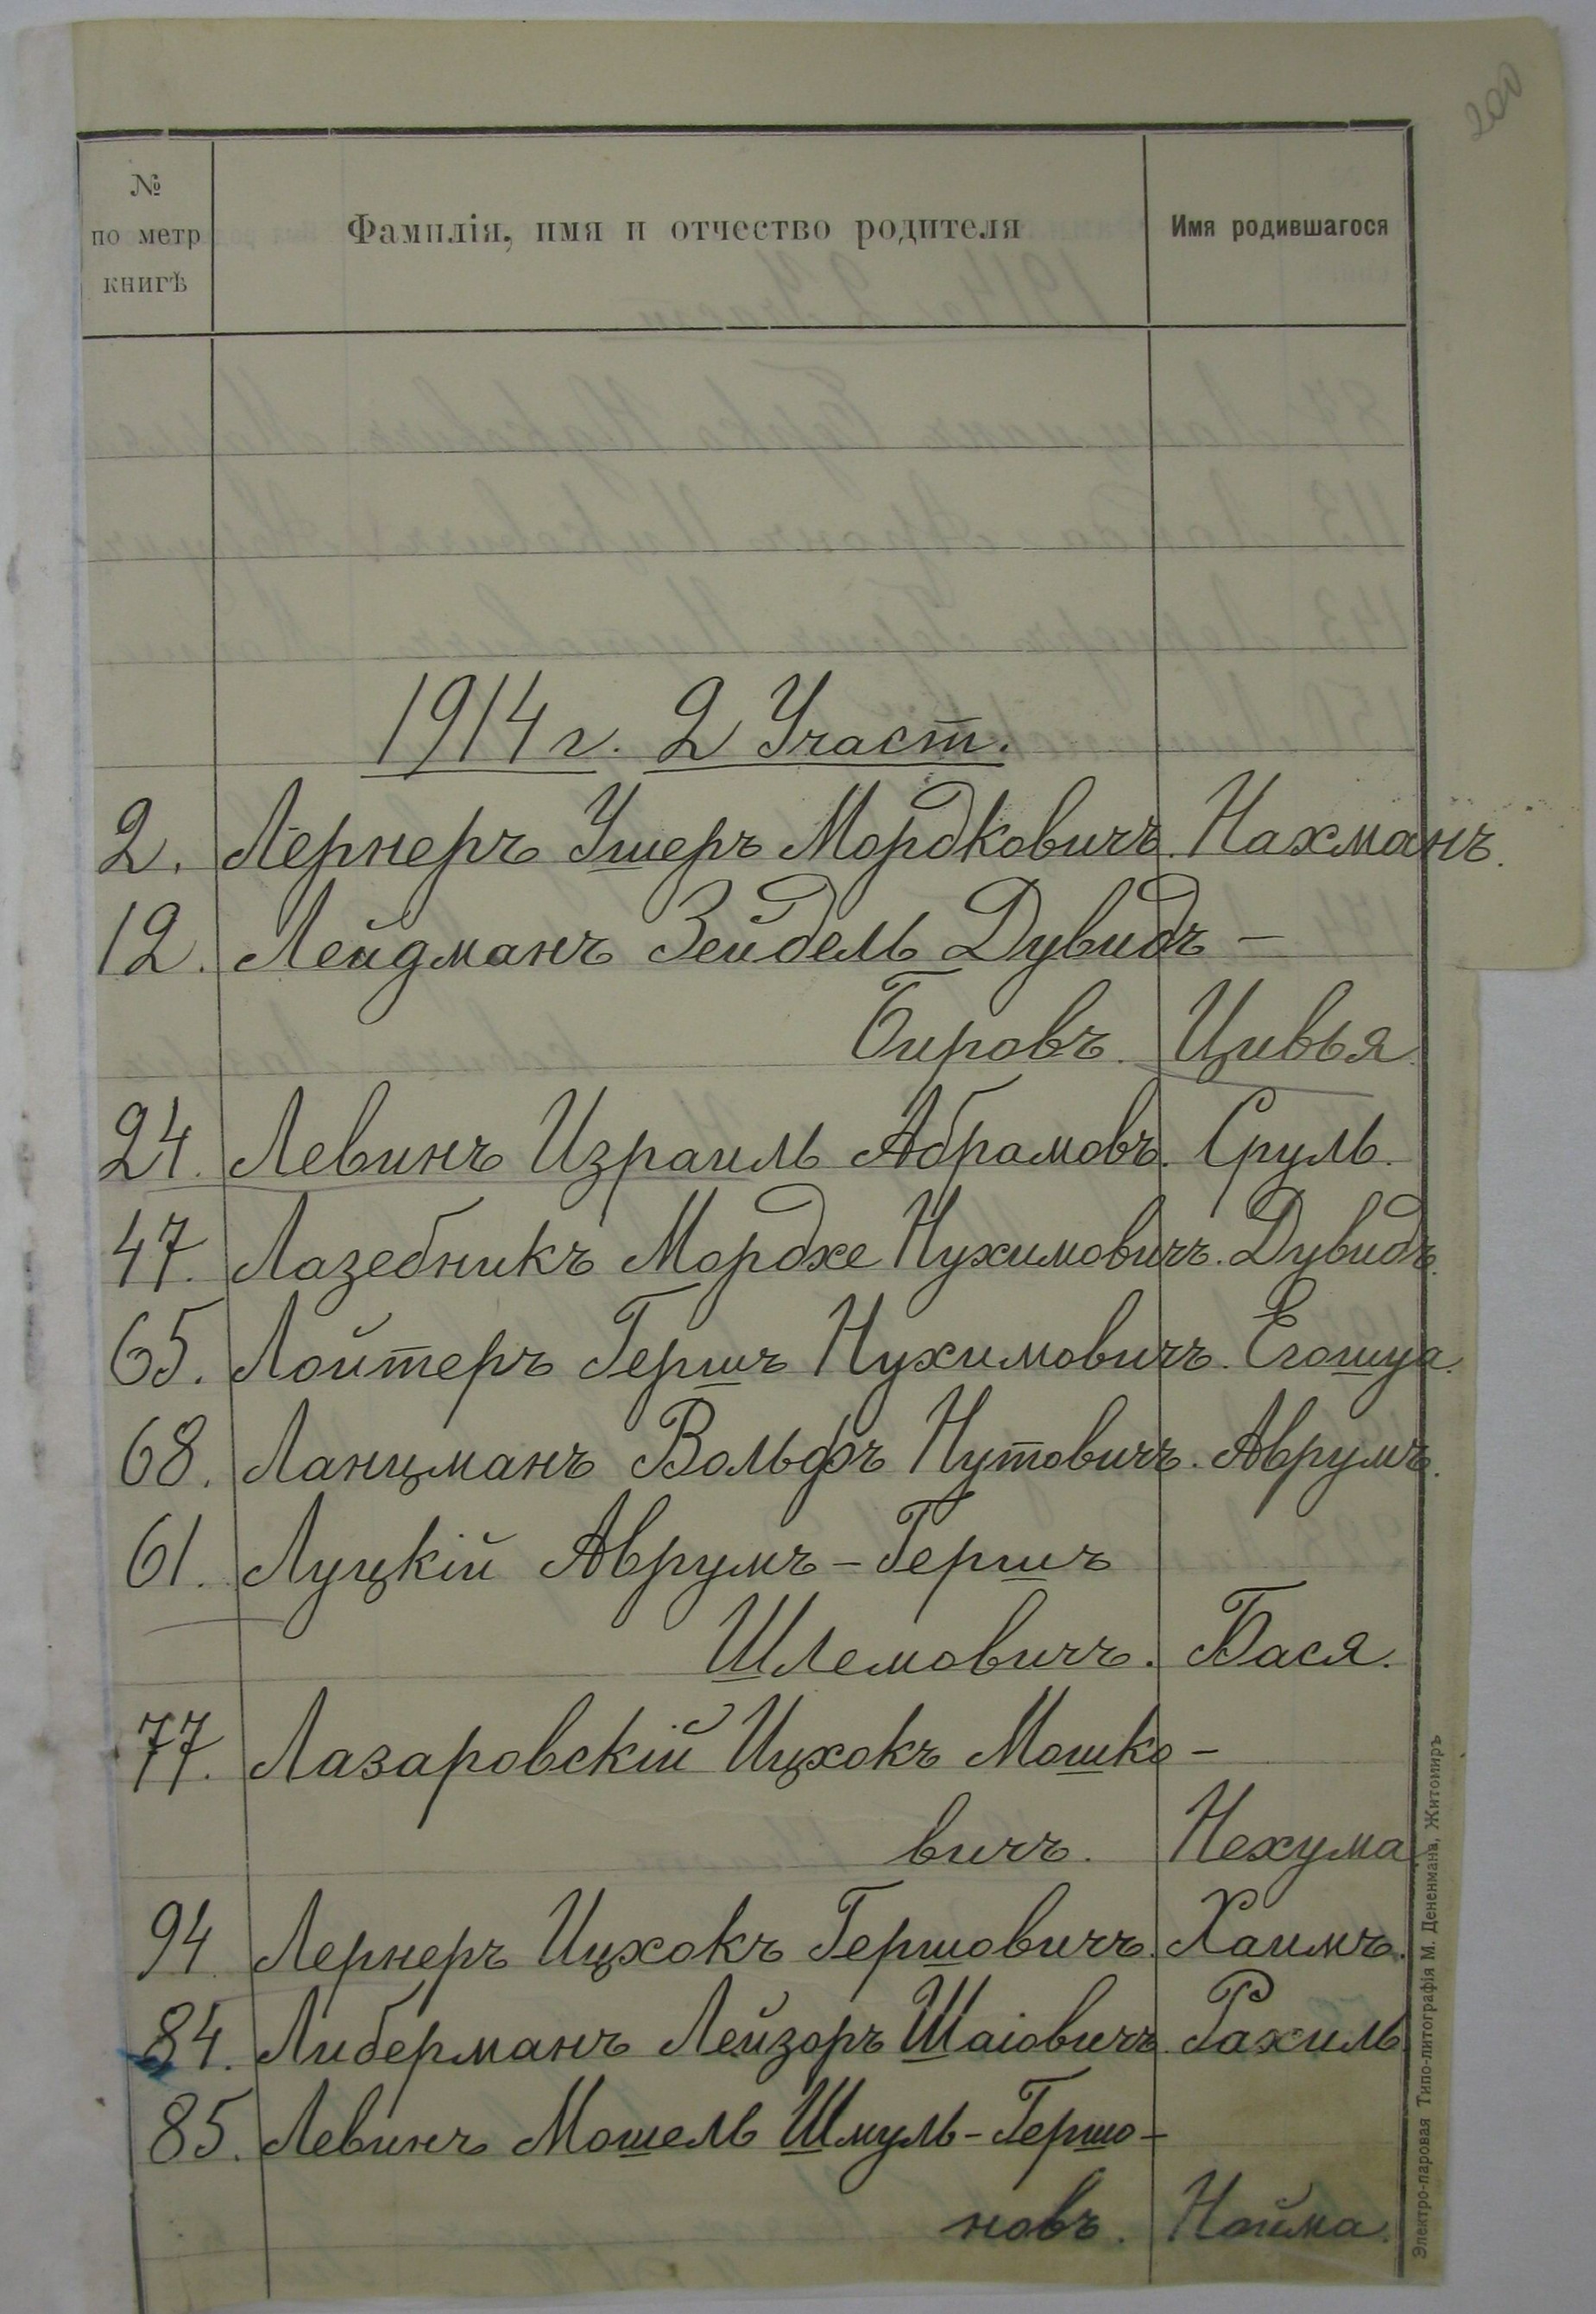 200
№
по метр
книгѣ
Фамилія, имя и отчество родителя
Имя родившагося
1914 г. 2 Участ.
2. Лернеръ Ушеръ Мордковичъ. Нахманъ.
12. Лейдманъ Зейдель Дувидъ-
Бировъ. Цивья.
24. Левинъ Израиль Абрамовъ. Сруль.
47. Лазебникъ Мордхе Нухимовичъ. Дувидъ.
65. Лойтеръ Гершъ Нухимовичъ. Егошуа.
68. Ланцманъ Вольфъ Нутовичъ. Аврумъ.
61. Луцкій Аврумъ-Гершъ
Шлемовичъ. Бася.
77. Лазаровскій Ицхокъ Мошко-
вичъ. Нехума
94 Лернеръ Ицхокъ Гершовичъ. Хаимъ.
84. Либерманъ Лейзоръ Шаіовичъ. Рахиль.
85. Левинъ Мошель Шмуль-Гершо-
новъ. Нойма.
Электро-паровая Типо-литографія М. Дененмана, Житомиръ